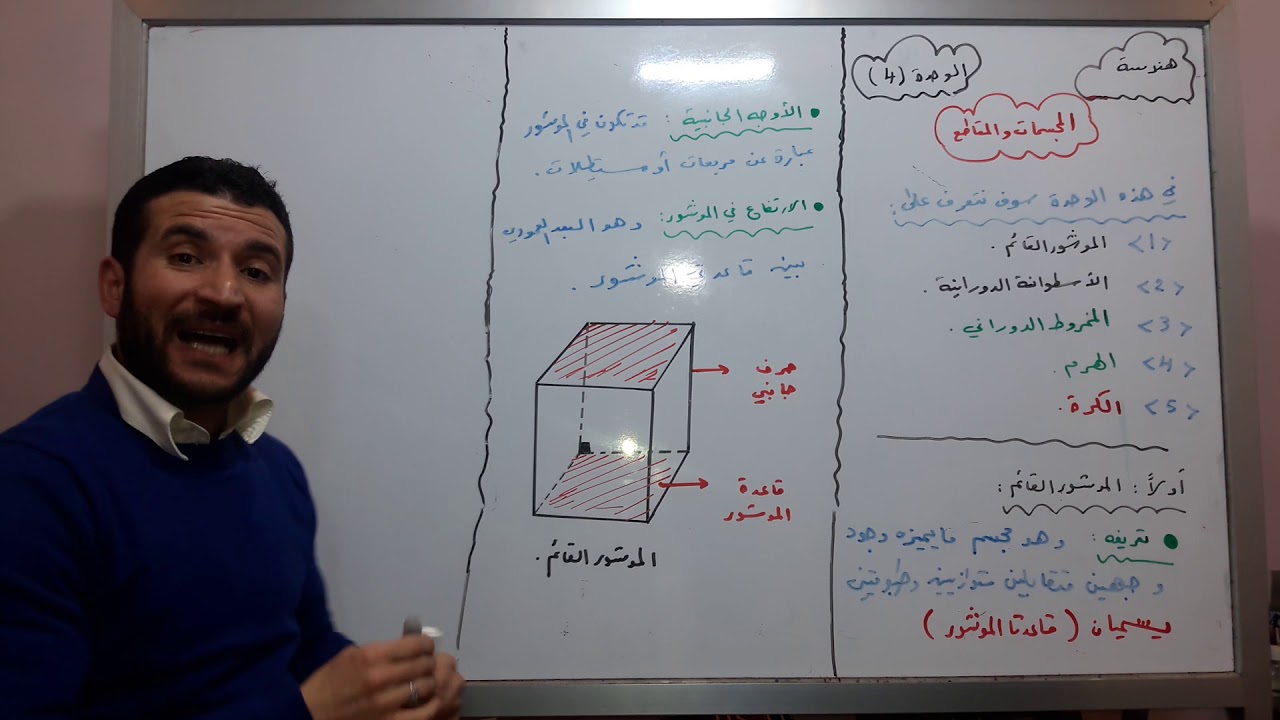 هندسة
الوحدة (4)
المجسمات والمقاطع
في هذه الوحدة سوف نتعرف على:
<1> الموشور القائم.
<2> الأسطوانة الدورانية.
<3> المخروط الدوراني.
<4> الهرم.
<5> الكرة.
أولاً: الموشور القائم:
• تعريفه: وهو مجسم ما يميزه وجود
وجهين متقابلين متوازيين وطبوقين
يسميان (قاعدتا الموشور)
• الأوجه الجانبية: قد تكون في الموشور
عبارة عن مربعات أو مستطيلات.
• الارتفاع في الموشور: وهو البعد العمودي
بين قاعدتي الموشور.
حرف
جانبي
قاعدة
الموشور
الموشور القائم.